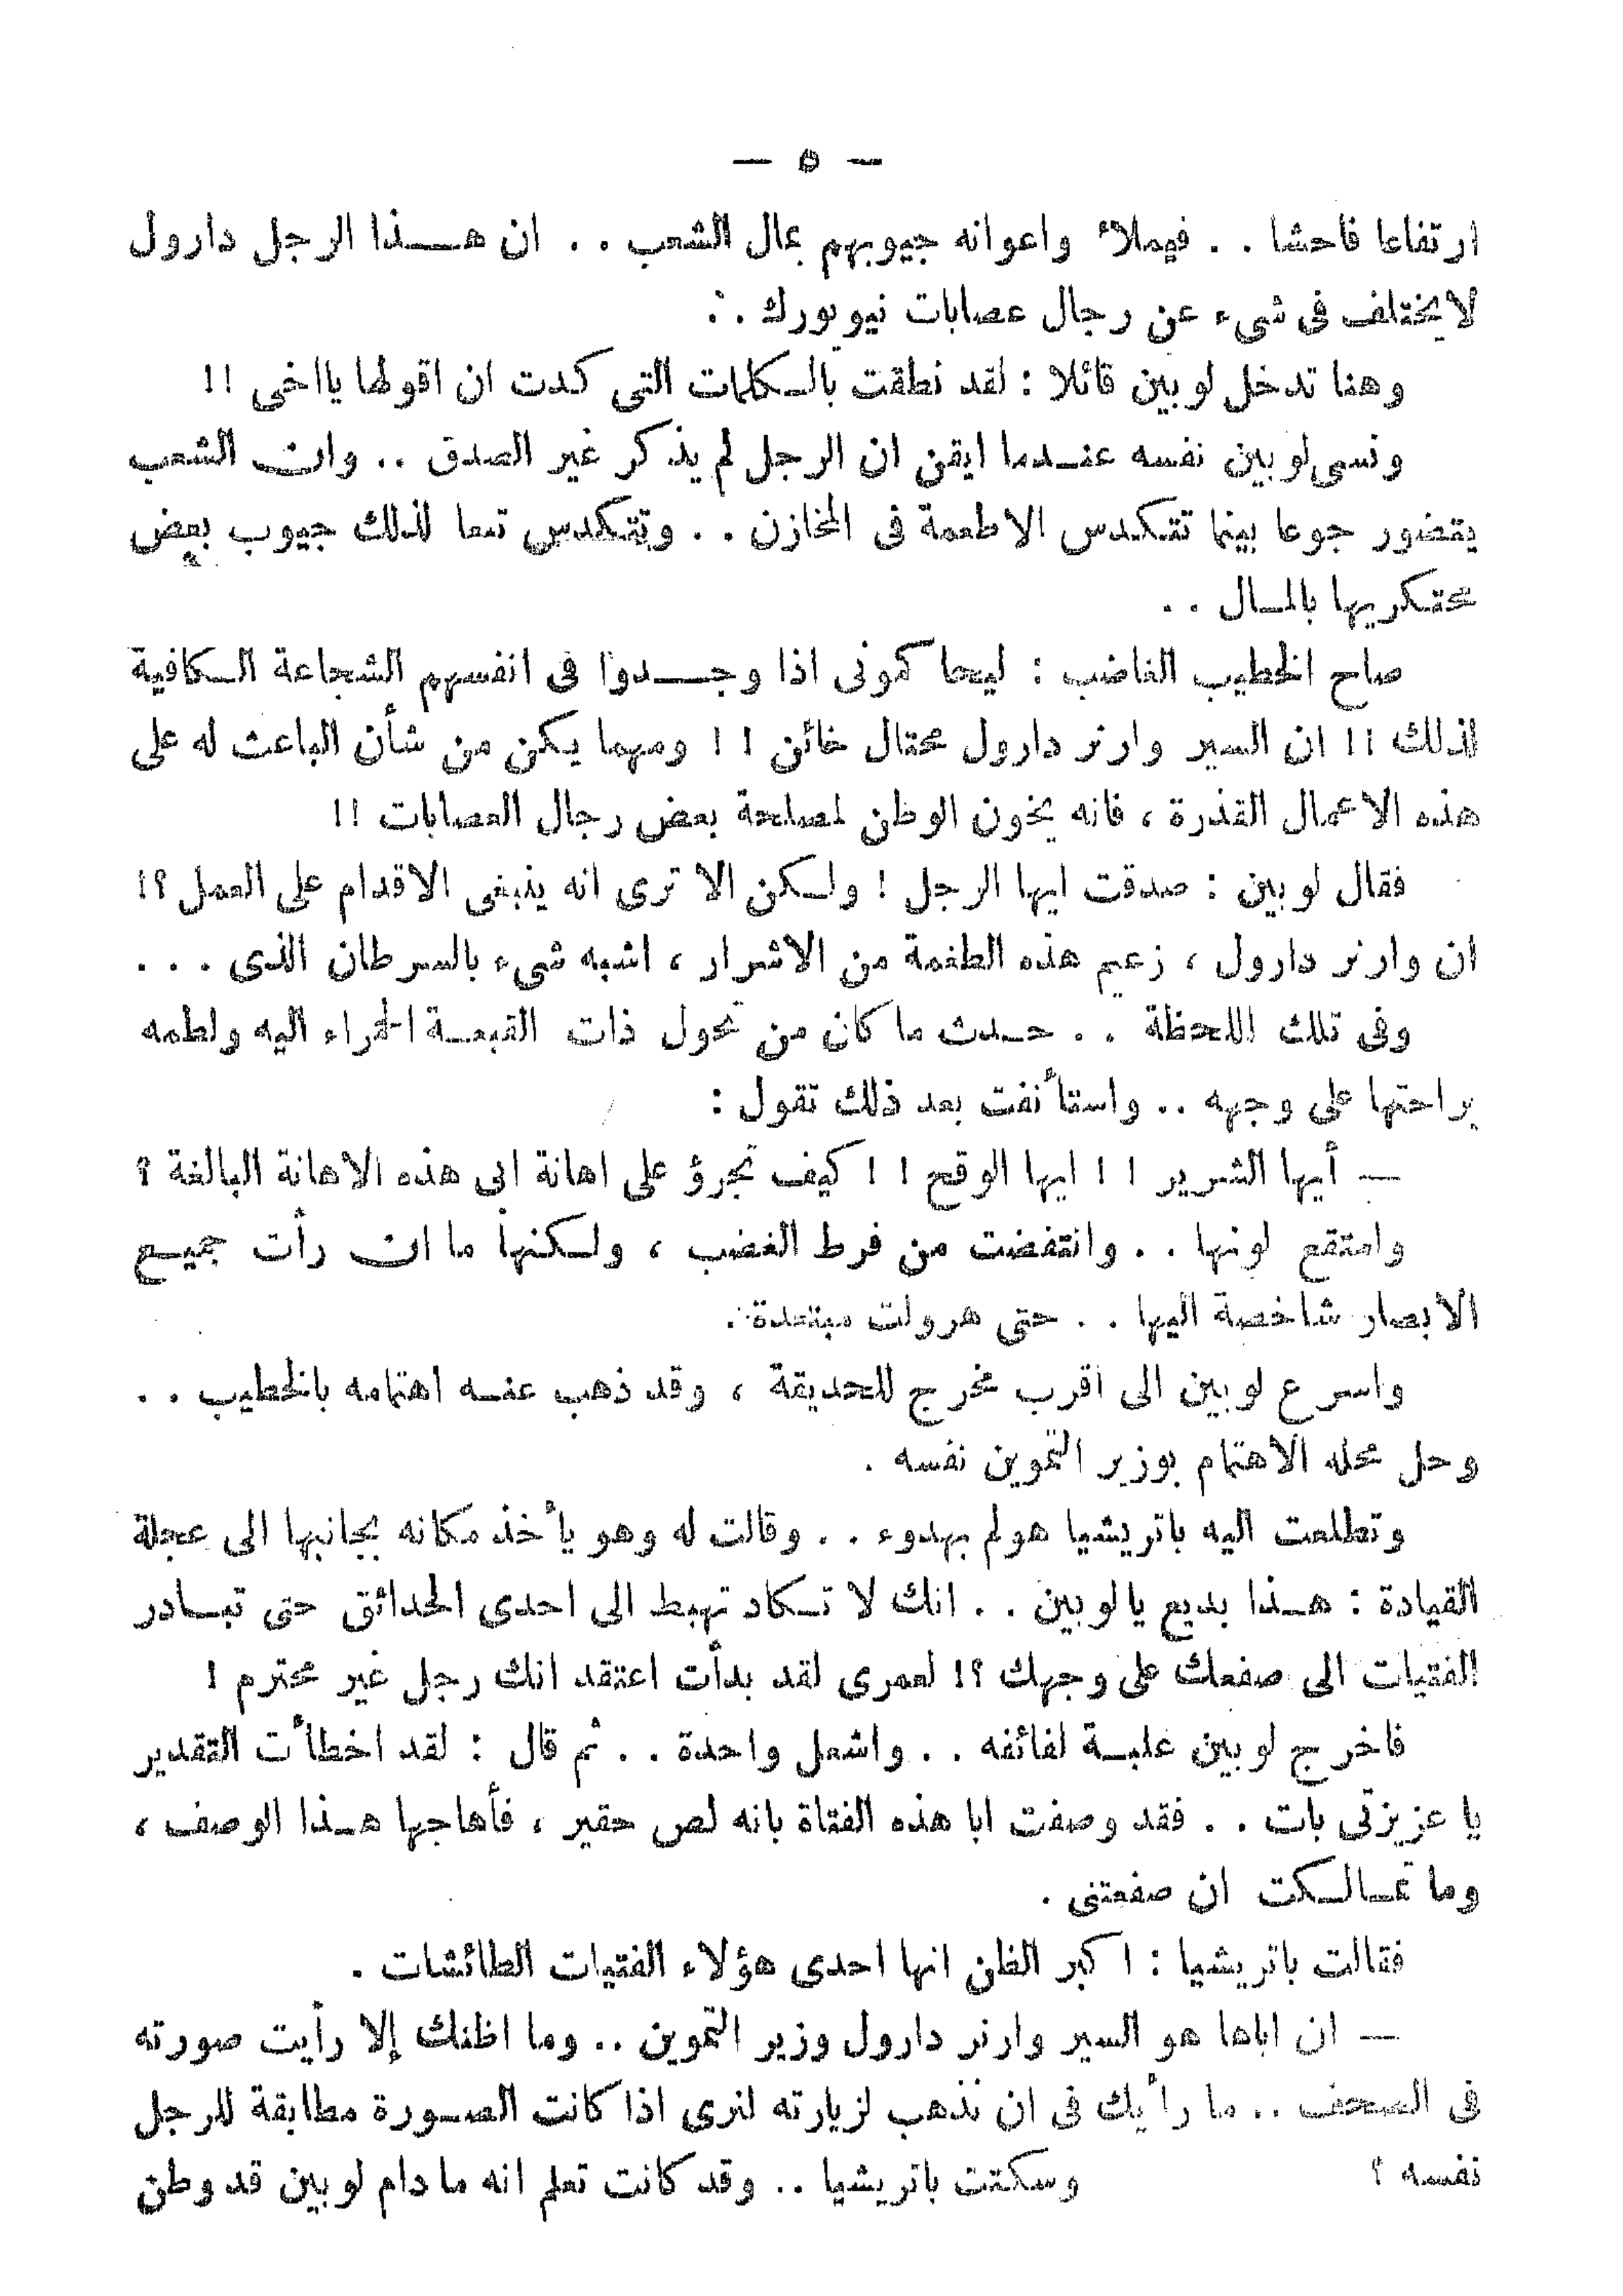 — ٥ —
ارتفاعا فاحشا . . فيملأ واعوانه جيوبهم بمال الشعب . . ان هـذا الرجل دارول
لا يختلف فى شىء عن رجال عصابات نيويورك . .
وهنا تدخل لوبين قائلا : لقد نطقت بالكلمات التى كدت ان اقولها يااخى !!
ونسى لوبين نفسه عنـدما ايقن ان الرجل لم يذكر غير الصدق .. وان الشعب
يتضور جوعا بينما تتكدس الاطعمة فى المخازن . . وتتكدس تبعا لذلك جيوب بعض
محتكريها بالمـال . .
صاح الخطيب الغاضب : ليحاكمونى اذا وجـدوا فى انفسهم الشجاعة الكافية
لذلك !! ان السير وارنر دارول محتال خائن !! ومهما يكن من شأن الباعث له على
هذه الاعمال القذرة ، فانه يخون الوطن لمصلحة بعض رجال العصابات !!
فقال لوبين : صدقت ايها الرجل ! ولكن الا ترى انه ينبغى الاقدام على العمل ؟!
ان وارنر دارول ، زعيم هذه الطغمة من الاشرار ، اشبه شىء بالسرطان الذى . . .
وفى تلك اللحظة . . حـدث ما كان من تحول ذات القبعـة الحمراء اليه ولطمه
براحتها على وجهه .. واستأنفت بعد ذلك تقول :
— أيها الشرير !! ايها الوقح !! كيف تجرؤ على اهانة ابى هذه الاهانة البالغة ؟
وامتقع لونها . . وانتفضت من فرط الغضب ، ولكنها ما ان رأت جميـع
الابصار شاخصة اليها . . حتى هرولت مبتعدة .
واسرع لوبين الى اقرب مخرج للحديقة ، وقد ذهب عنـه اهتمامه بالخطيب . .
وحل محله الاهتمام بوزير التموين نفسه .
وتطلعت اليه باتريشيا هولم بهدوء . . وقالت له وهو يأخذ مكانه بجانبها الى عجلة
القيادة : هـذا بديع يالوبين . . انك لا تـكاد تهبط الى احدى الحدائق حتى تبـادر
الفتيات الى صفعك على وجهك ؟! لعمرى لقد بدأت اعتقد انك رجل غير محترم !
فاخرج لوبين علبـة لفائفه . . واشعل واحدة . . ثم قال : لقد اخطأت التقدير
يا عزيزتى بات . . فقد وصفت ابا هذه الفتاة بانه لص حقير ، فأهاجها هـذا الوصف ،
وما تمـالـكت ان صفعتنى .
فقالت باتريشيا : اكبر الظن انها احدى هؤلاء الفتيات الطائشات .
— ان اباها هو السير وارنر دارول وزير التموين .. وما اظنك إلا رأيت صورته
فى الصحف .. ما رأيك فى ان نذهب لزيارته لنرى اذا كانت الصـورة مطابقة للرجل
نفسه ؟ وسكتت باتريشيا .. وقد كانت تعلم انه ما دام لوبين قد وطن